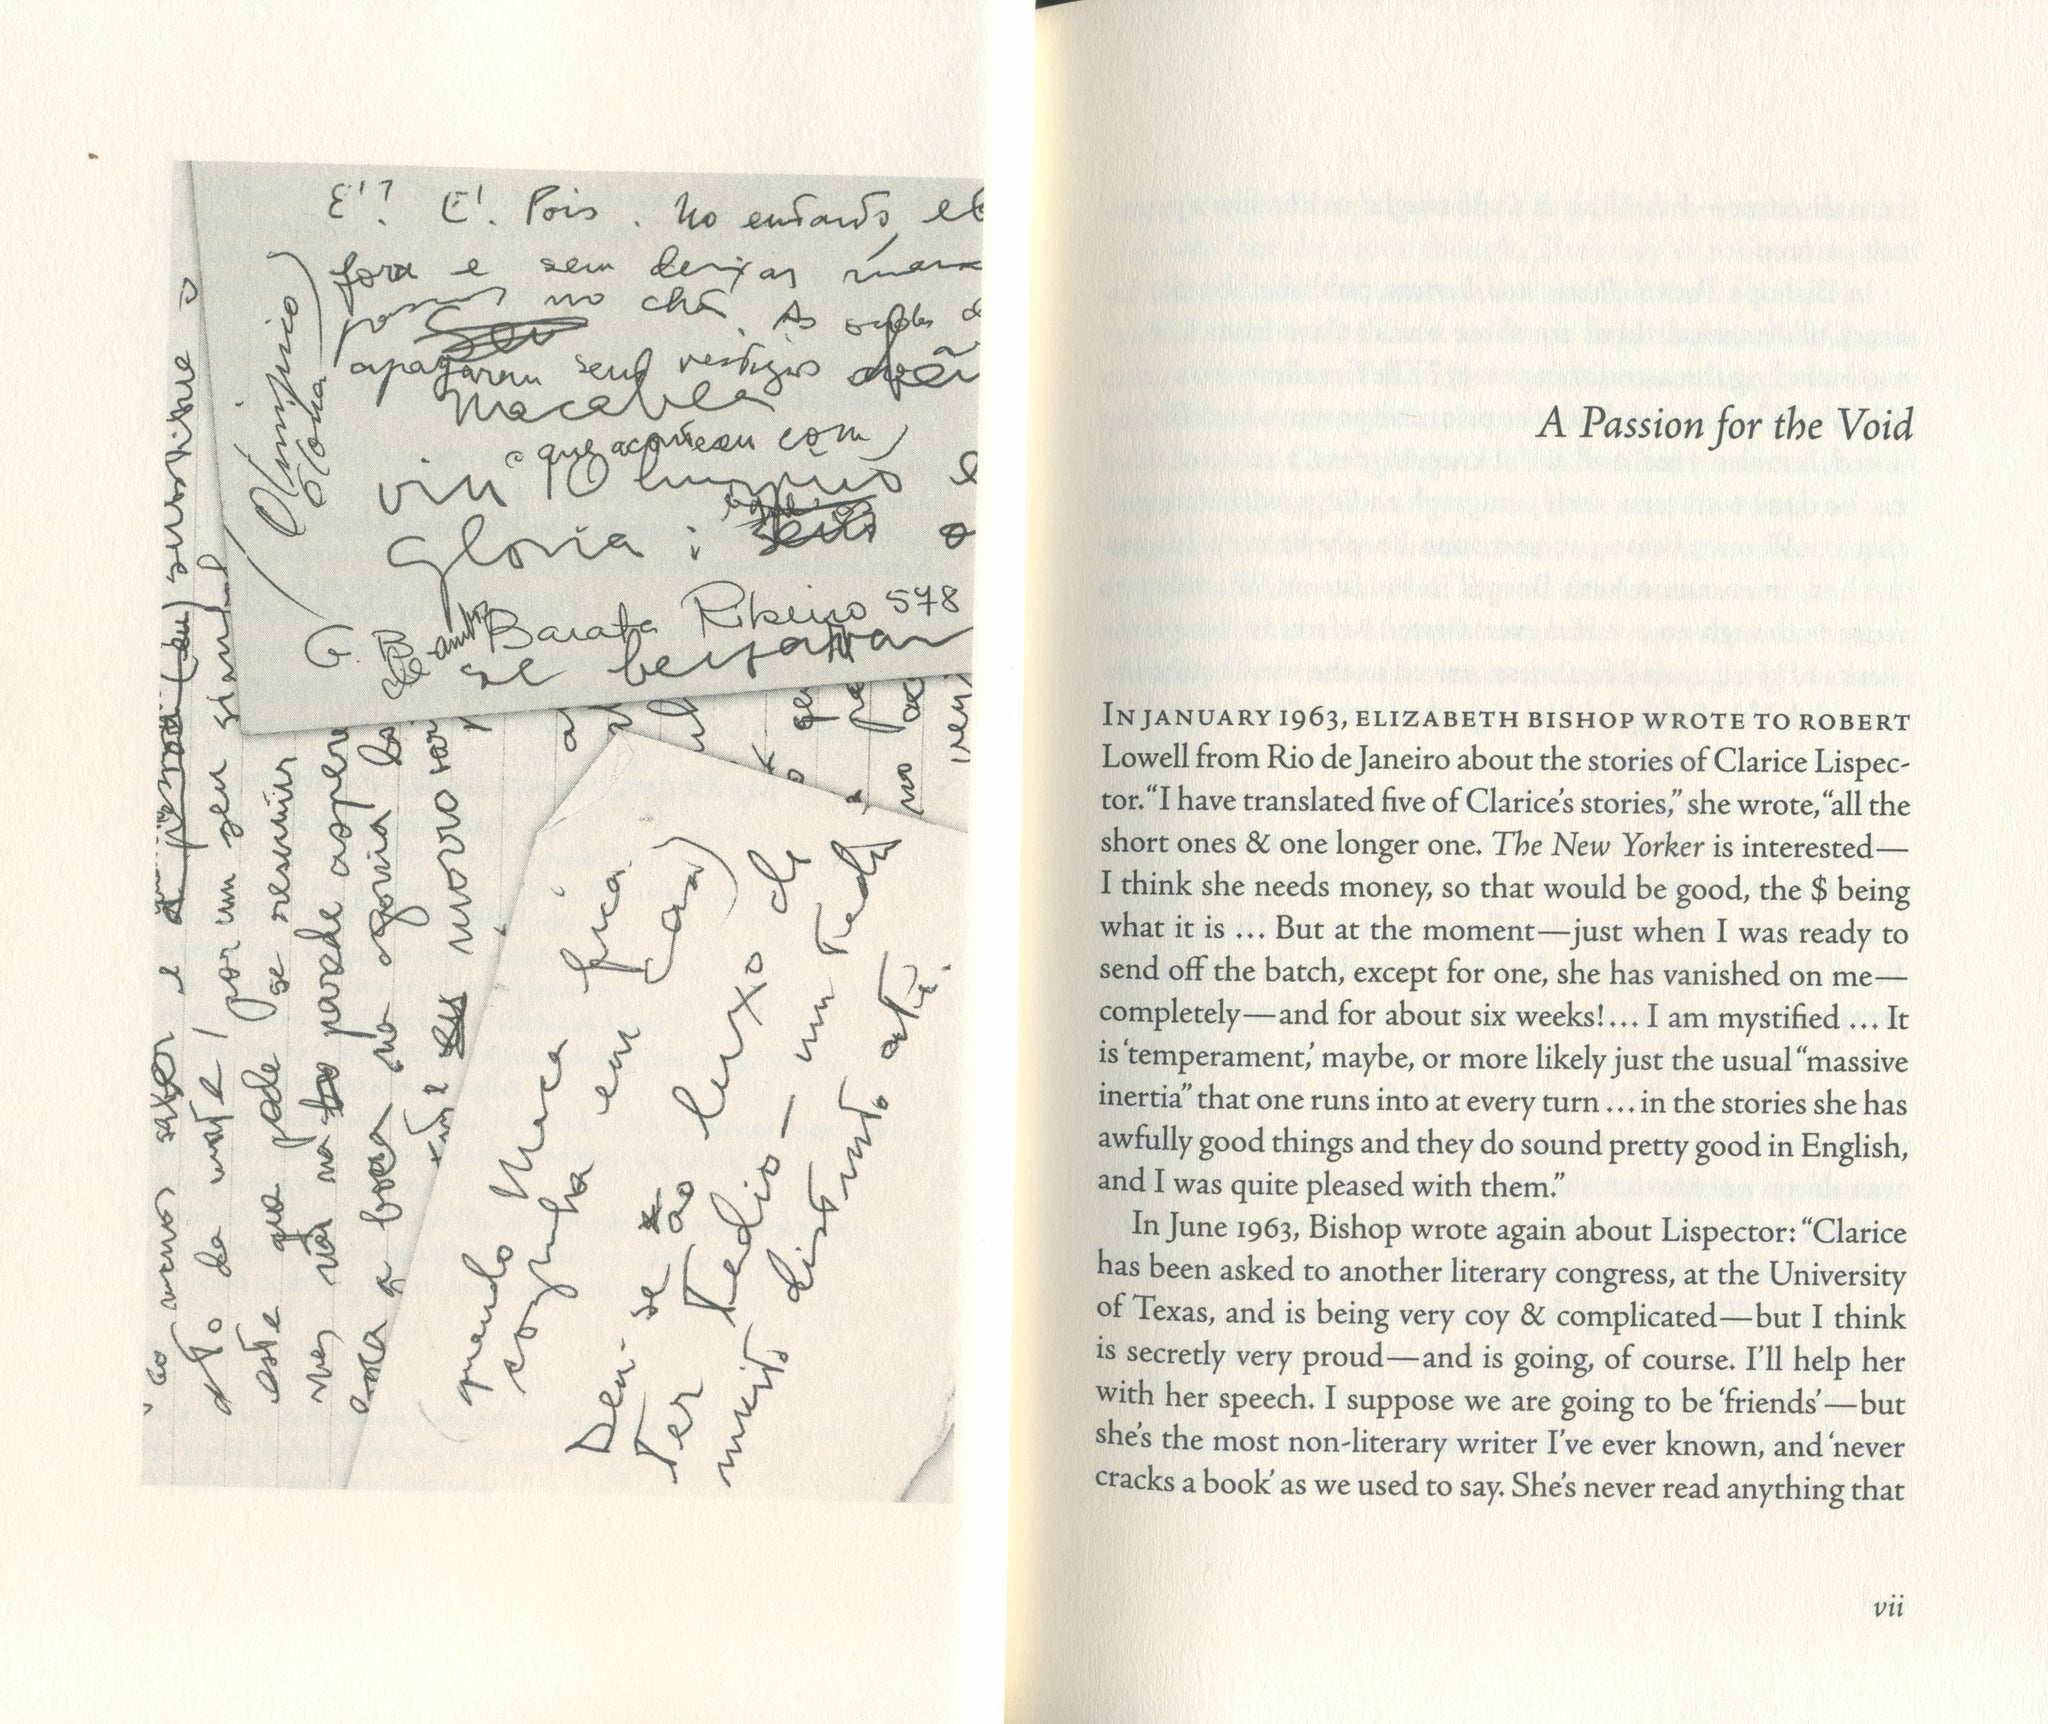 E'? E'. Pois. No entanto, el
fora e sem deixar
no chão. As
apagarem sem vestígios
Macabea
o que aconteceu com
gloria:
G. B. Barata Ribeiro 578
se
Olímpico
gloria
ao menos saber e
ato da morte! por um seu
este que pode se resumir
vez vai na parede aspera
ama a boca na agonia
novo
quando Maca fica
sozinha em casa)
Deu-se ao luxo de
ter tedio — um tedio
muito distinto até.
A Passion for the Void
IN JANUARY 1963, ELIZABETH BISHOP WROTE TO ROBERT
Lowell from Rio de Janeiro about the stories of Clarice Lispec-
tor. “I have translated five of Clarice’s stories,” she wrote, “all the
short ones & one longer one. The New Yorker is interested—
I think she needs money, so that would be good, the $ being
what it is … But at the moment—just when I was ready to
send off the batch, except for one, she has vanished on me—
completely—and for about six weeks!… I am mystified … It
is ‘temperament,’ maybe, or more likely just the usual “massive
inertia” that one runs into at every turn … in the stories she has
awfully good things and they do sound pretty good in English,
and I was quite pleased with them.”
In June 1963, Bishop wrote again about Lispector: “Clarice
has been asked to another literary congress, at the University
of Texas, and is being very coy & complicated—but I think
is secretly very proud—and is going, of course. I’ll help her
with her speech. I suppose we are going to be ‘friends’—but
she’s the most non-literary writer I’ve ever known, and ‘never
cracks a book’ as we used to say. She’s never read anything that
vii